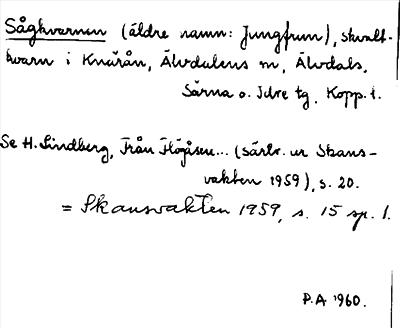 Sågkvarnen (äldre namn: Jungfrun), skvalt-
kvarn i Knärån, Älvdalens sn, Älvdals,
Särna o. Idre tg. Kopp. l.
Se H. Lindberg, Från Högåsen... (särtr. ur Skans-
vakten 1959), s. 20.
= Skansvakten 1959, s. 15 sp. 1.
P.A 1960.